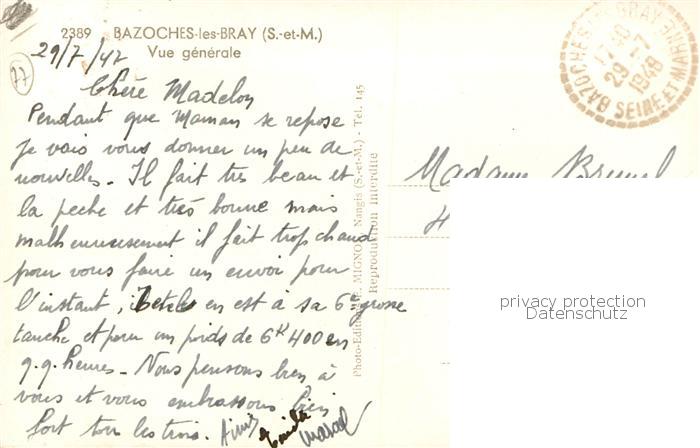 2389 BAZOCHES-les-BRAY (S.-et-M.)
Vue générale
29/7/47
77
Chère Madelon
Pendant que Maman se repose
je vais vous donner un peu de
nouvelles. Il fait très beau et
la peche et très bonne mais
malheureusement il fait trop chaud
pour vous faire un envoi pour
l'instant, en est à sa 6me grosse
tanche et pour un poids de 6K400 en
q.q. heures. Nous pensons bien à
vous et vous embrassons bien
fort tous les trois. Aimé
Marcel
Photo-Edition MIGNON, Nangis (S.-et-M.) - Tel. 145
Reproduction interdite
BAZOCHES-LES-BRAY
17 40
29 -7
1948
SEINE-ET-MARNE
Madame
privacy protection
Datenschutz